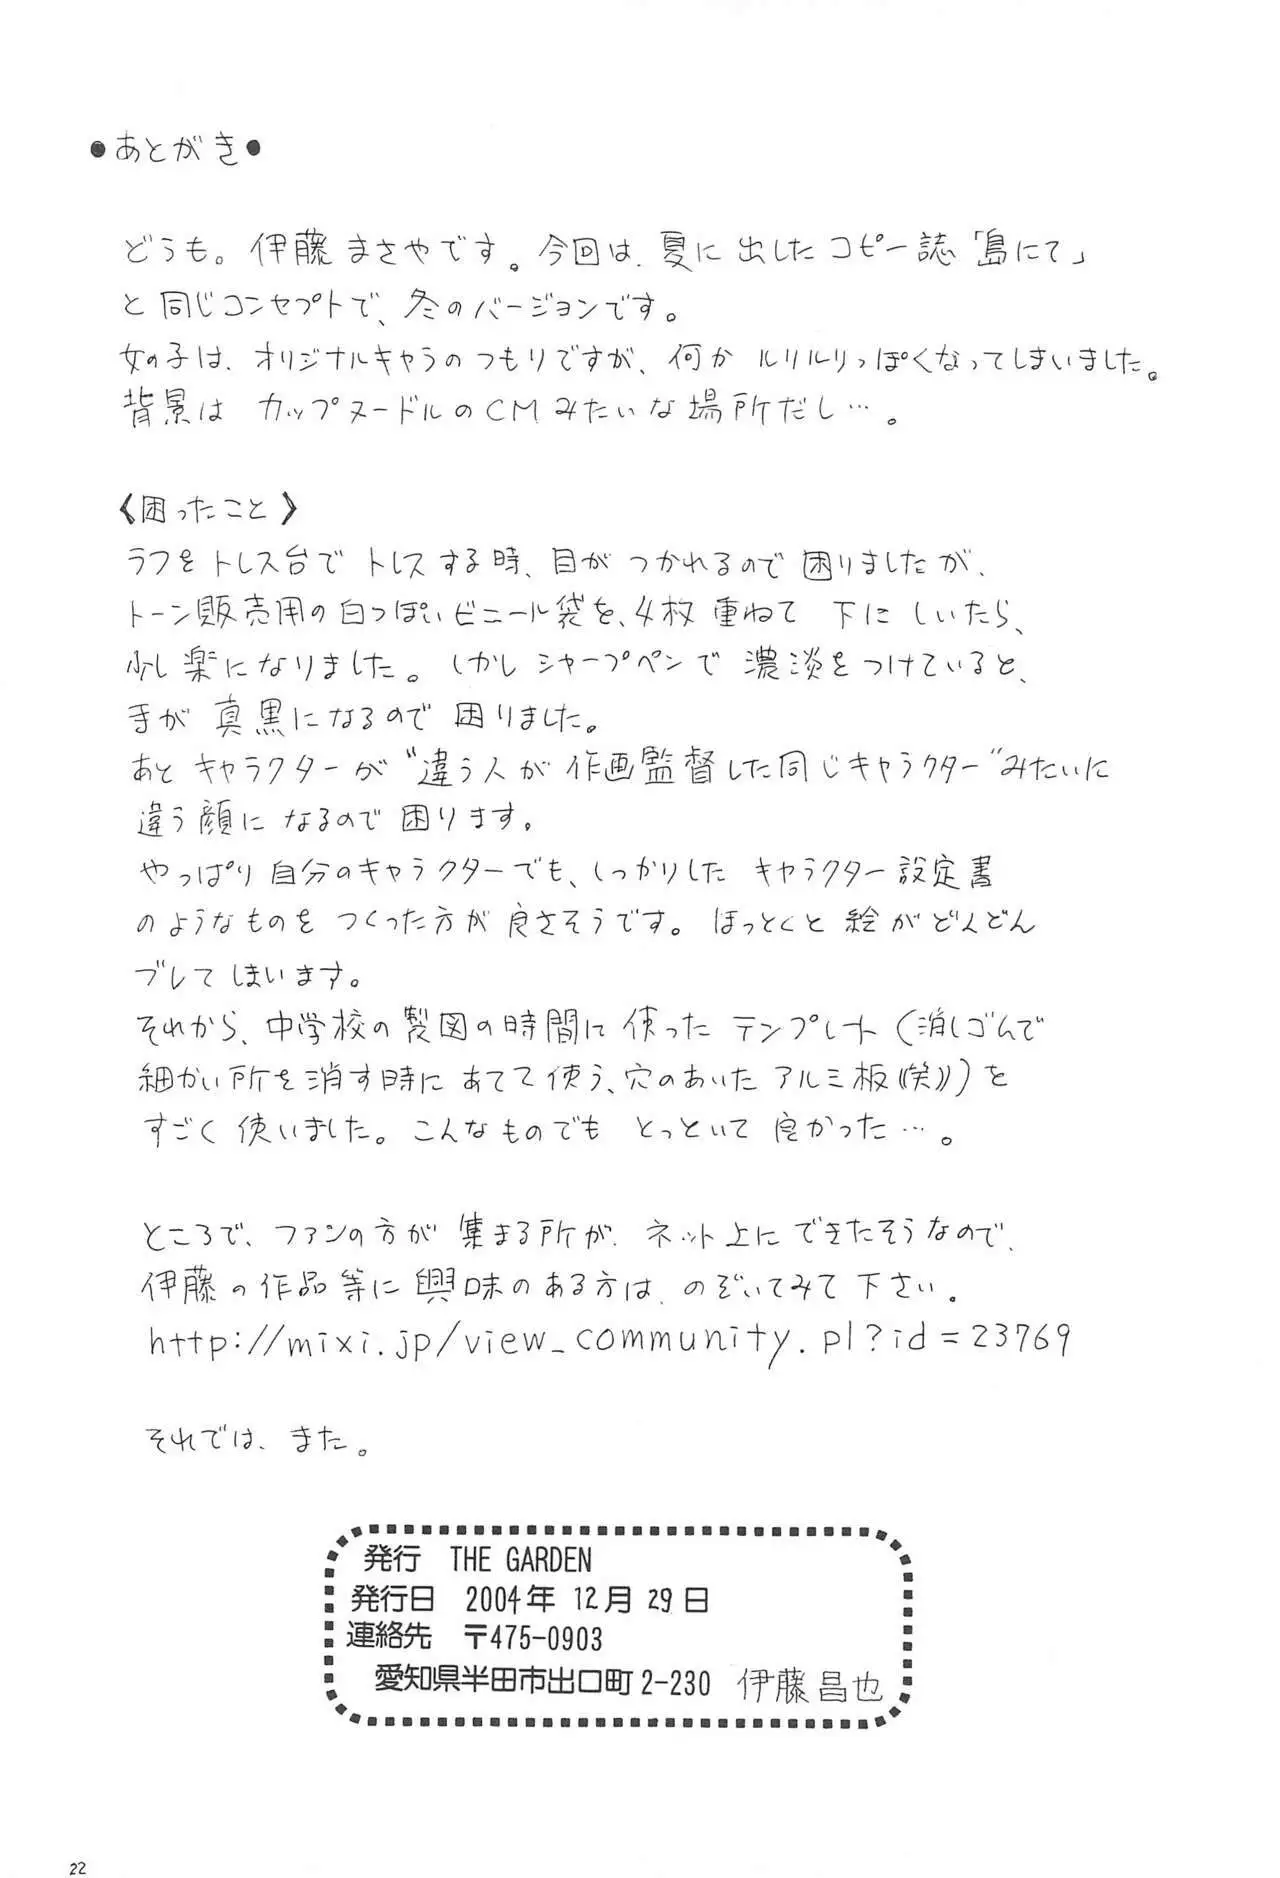 ●あとがき●
どうも。伊藤まさやです。今回は、夏に出したコピー誌「島にて」
と同じコンセプトで、冬のバージョンです。
女の子は、オリジナルキャラのつもりですが、何かルリルリっぽくなってしまいました。
背景はカップヌードルのCMみたいな場所だし…。
〈困ったこと〉
ラフをトレス台でトレスする時、目がつかれるので困りましたが、
トーン販売用の白っぽいビニール袋を、4枚重ねて下にしいたら、
少し楽になりました。しかしシャープペンで濃淡をつけていると、
手が真黒になるので困りました。
あとキャラクターが“違う人が作画監督した同じキャラクター”みたいに
違う顔になるので困ります。
やっぱり自分のキャラクターでも、しっかりしたキャラクター設定書
のようなものをつくった方が良さそうです。ほっとくと絵がどんどん
ブレてしまいます。
それから、中学校の製図の時間に使ったテンプレート（消しゴムで
細かい所を消す時にあてて使う、穴のあいたアルミ板《笑》）を
すごく使いました。こんなものでもとっといて良かった…。
ところで、ファンの方が集まる所が、ネット上にできたそうなので、
伊藤の作品等に興味のある方は、のぞいてみて下さい。
http://mixi.jp/view_community.pl?id=23769
それでは、また。
発行 THE GARDEN
発行日 2004年 12月 29日
連絡先 〒475-0903
愛知県半田市出口町2-230 伊藤昌也
22